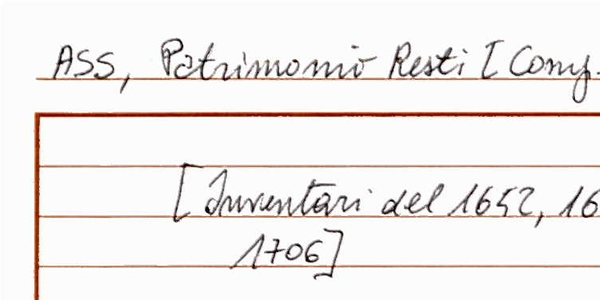 ASS, Patrimonio Resti [Comp.
[Inventari del 1652, 16
1706]